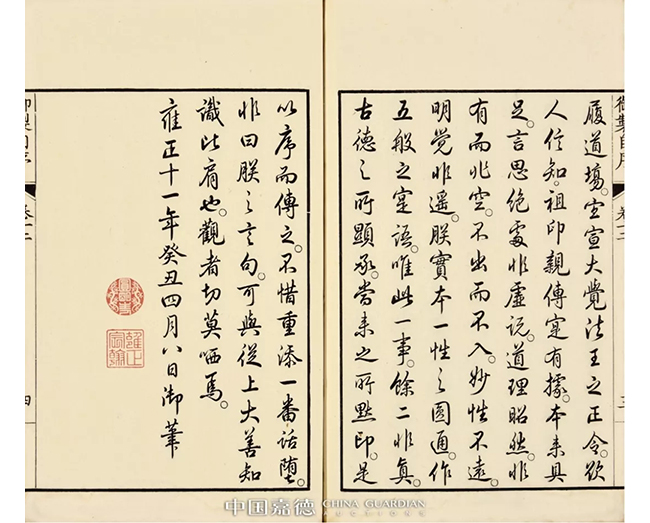 履道場。空宣大覺法王之正令。欲
人信知。祖印親傳。寔有據。本来具
足。言思絕處非虛說。道理昭然。非
有而非空。不出而不入。妙性不遠。
明覺非遥。朕實本一性之圓通。作
五般之寔語。唯此一事。餘二非真。
古德之所顯承。嘗来之所點印。是
以序而傳之。不惜重添一番話墮。
非曰朕之言句。可與從上大善知
識比肩也。觀者切莫哂焉。
雍正十一年癸丑四月八日御筆
雍正宸翰
御製自序
卷十二
三
四
中国嘉德 CHINA GUARDIAN
AUCTIONS